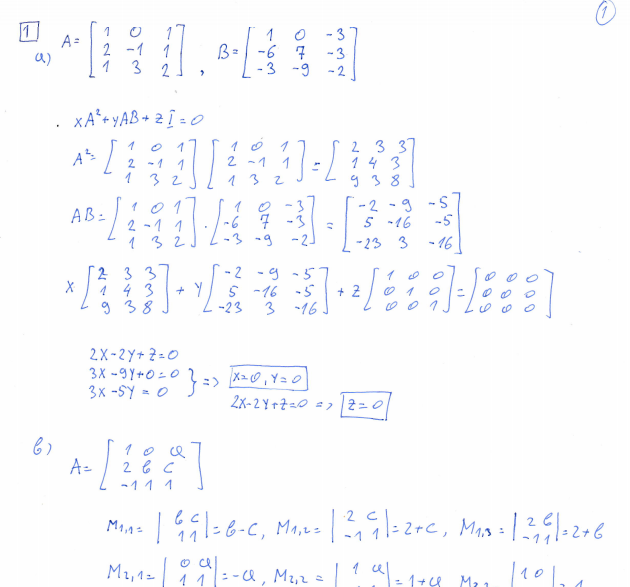 1
1 a) A = [1 0 1; 2 -1 1; 1 3 2], B = [1 0 -3; -6 7 -3; -3 -9 -2]
. xA²+yAB+zI=0
A²= [1 0 1; 2 -1 1; 1 3 2] [1 0 1; 2 -1 1; 1 3 2] = [2 3 3; 1 4 3; 9 3 8]
AB= [1 0 1; 2 -1 1; 1 3 2] · [1 0 -3; -6 7 -3; -3 -9 -2] = [-2 -9 -5; 5 -16 -5; -23 3 -16]
x [2 3 3; 1 4 3; 9 3 8] + y [-2 -9 -5; 5 -16 -5; -23 3 -16] + z [1 0 0; 0 1 0; 0 0 1] = [0 0 0; 0 0 0; 0 0 0]
2x-2y+z=0
3x-9y+0=0 } => x=0, y=0
3x-5y=0
2x-2y+z=0 => z=0
b)
A= [1 0 a; 2 b c; -1 1 1]
M1,1= |b c; 1 1| = b-c, M1,2= |2 c; -1 1| = 2+c, M1,3= |2 b; -1 1| = 2+b
M2,1= |0 a; 1 1| = -a, M2,2= |1 a